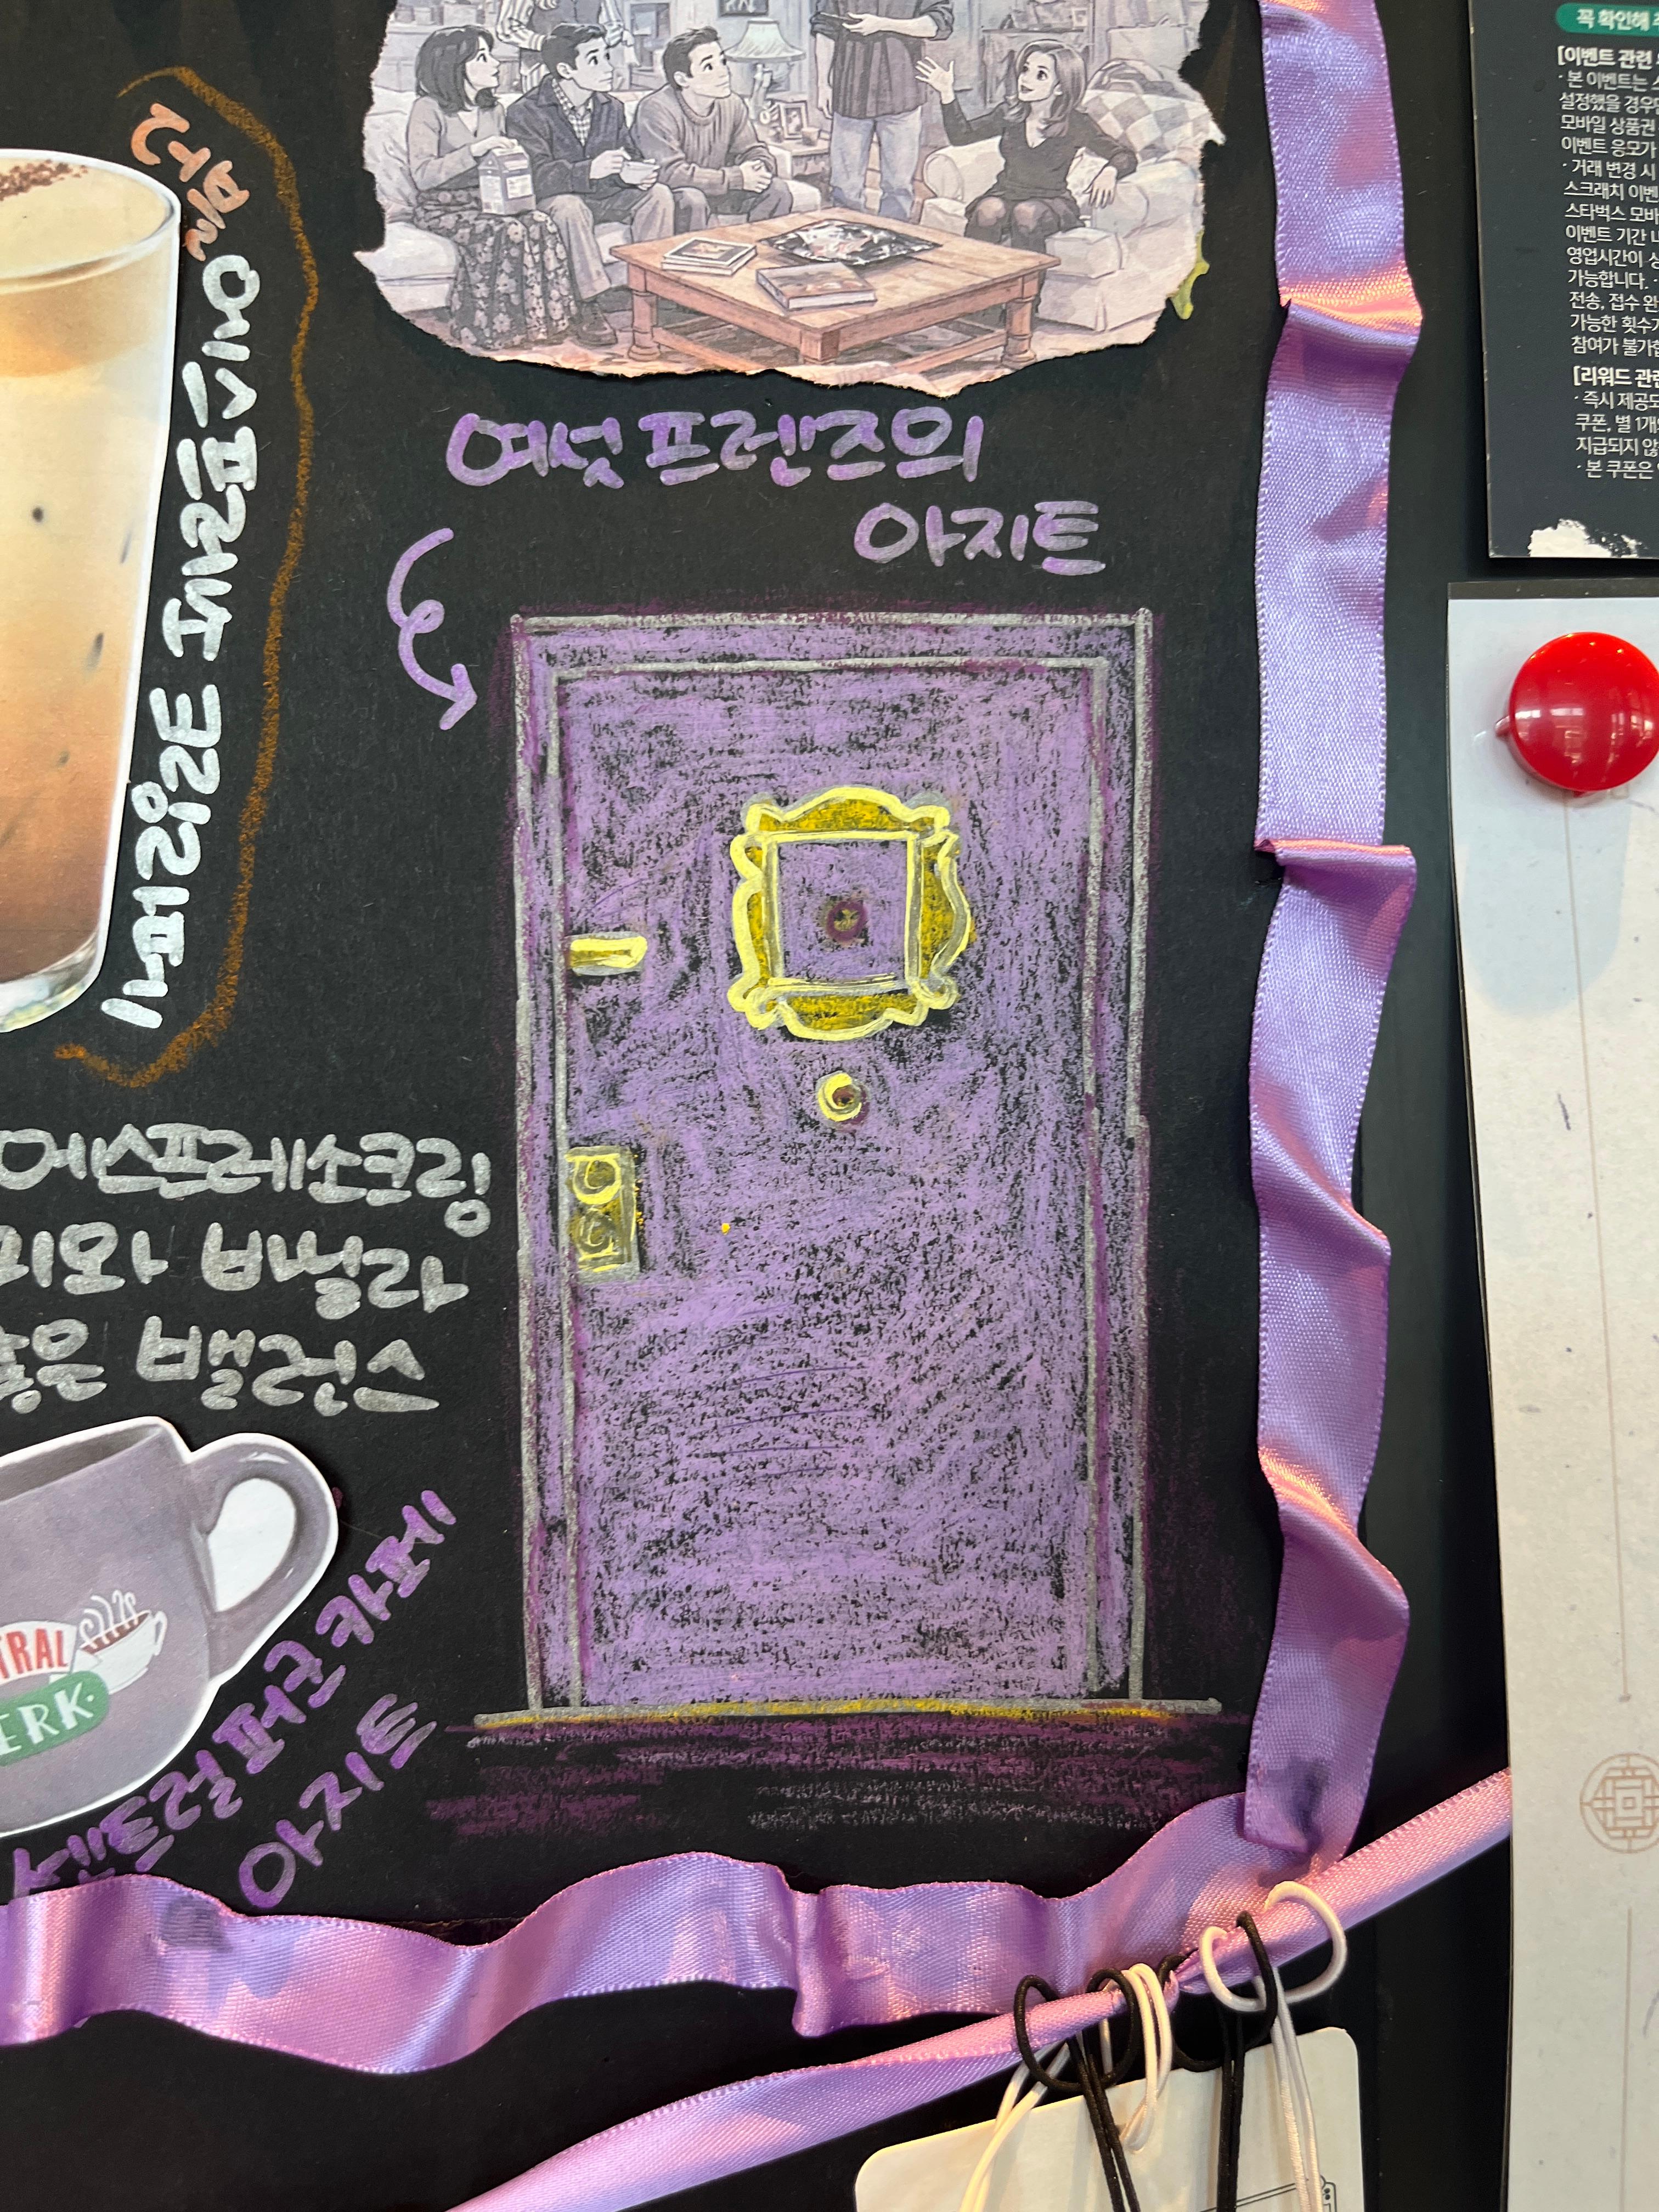 여섯 프렌즈의
아지트
스마일드 재료쉬이
에스프레소 크링
피와 바닐라
좋은 밸런스
TRAL
ERK
센트럴 퍼크 카페
아지트
꼭 확인해
[이벤트 관련
· 본 이벤트는
설정했을 경우
모바일 상품권
이벤트 응모가
· 거래 변경 시
스크래치 이벤
스타벅스 모바
이벤트 기간 내
영업시간이 상
가능합니다.
전송, 접수 완
가능한 횟수가
참여가 불가합
[리워드 관련
· 즉시 제공되
쿠폰, 별 1개
지급되지 않
· 본 쿠폰은